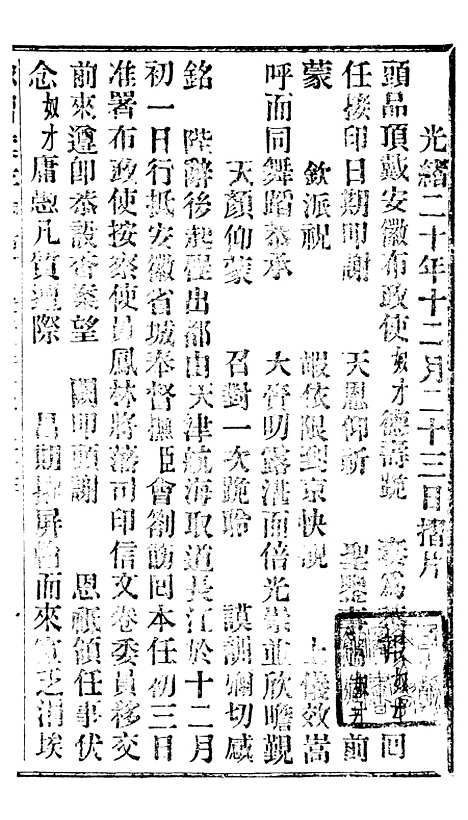 光緒二十年十二月二十三日摺片
頭品頂戴安徽布政使奴才德壽跪 奏爲恭報奴才回
任接印日期叩謝 天恩仰祈 聖鑒事竊奴才前
蒙 欽派祝 嘏依限到京快覩 上儀效嵩
呼而同舞蹈恭承 大賚明露湛而倍光榮並欣瞻覲
天顏仰蒙 召對一次跪聆 謨訓彌切感
銘 陛辭後起程出都由天津航海取道長江於十二月
初一日行抵安徽省城奉督撫臣會劄飭回本任初三日
准署布政使按察使員鳳林將藩司印信文卷委員移交
前來遵卽恭設香案望 闕叩頭謝 恩祗領任事伏
念奴才庸愚凡質遭際 昌期屛翰而來寔乏涓埃